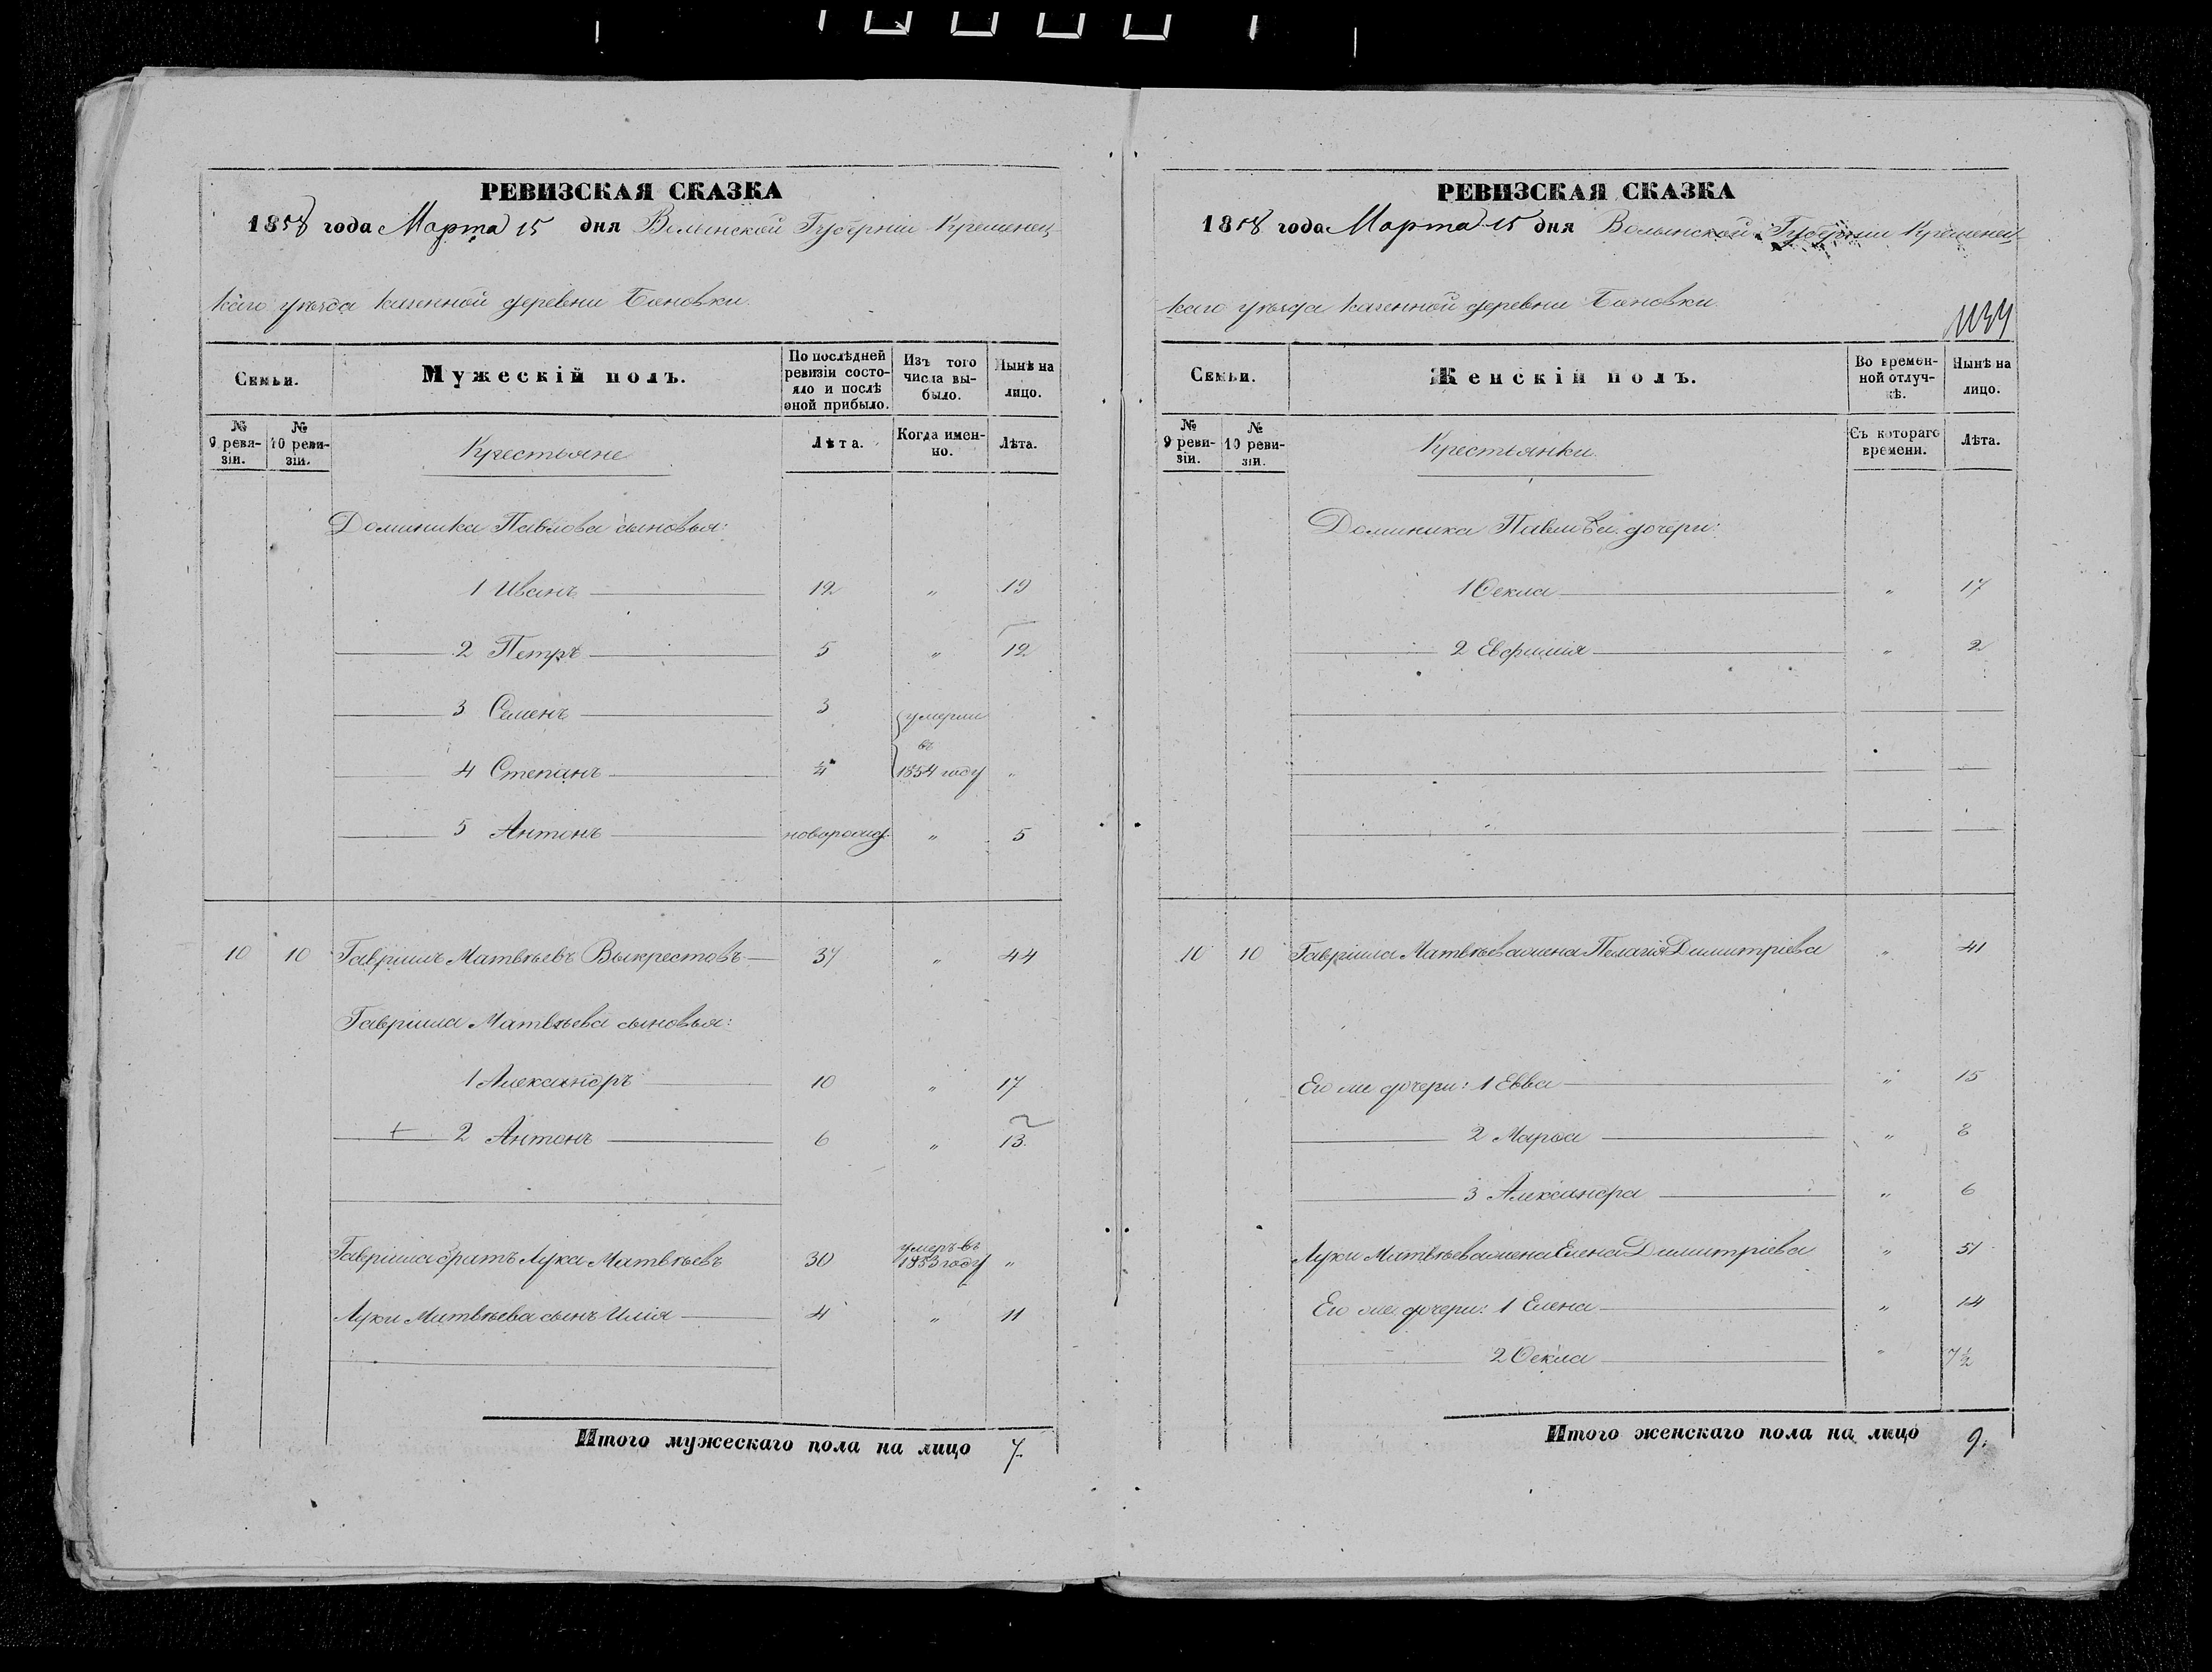 РЕВИЗСКАЯ СКАЗКА
1858 года Марта 15 дня Волынской Губерніи Кременец-
каго уѣзда казенной деревни Бановки
Семьи.
Мужескій полъ.
По послѣдней ревизіи состояло и послѣ оной прибыло.
Изъ того числа выбыло.
Нынѣ на лицо.
№ 9 ревизіи.
№ 10 ревизіи.
Крестьяне
Лѣта.
Когда именно.
Лѣта.
Доминика Павлова сыновья:
1 Иванъ 12 " 19
2 Петръ 5 " 12
3 Семенъ 3 умерли
въ
4 Степанъ ¼ 1854 году "
5 Антонъ новорожд. " 5
10 10 Гавріилъ Матвѣевъ Выкрестовъ 37 " 44
Гавріила Матвѣева сыновья:
1 Александръ 10 " 17
+ 2 Антонъ 6 " 13
Гавріила братъ Лука Матвѣевъ 30 умеръ въ 1853 году "
Луки Матвѣева сынъ Илія 4 " 11
Итого мужескаго пола на лицо 7.
РЕВИЗСКАЯ СКАЗКА
1858 года Марта 15 дня Волынской Губерніи Кременец-
каго уѣзда казенной деревни Бановки
Семьи.
Женскій полъ.
Во временной отлучкѣ.
Нынѣ на лицо.
№ 9 ревизіи.
№ 10 ревизіи.
Крестьянки
Съ котораго времени.
Лѣта.
Доминика Павлова дочери:
1 Ѳекла " 17
2 Евфимія " 2
10 10 Гавріила Матвѣева жена Пелагія Димитріева " 41
Его же дочери: 1 Евва " 15
2 Марѳа " 8
3 Александра " 6
Луки Матвѣева жена Елена Димитріева " 51
Его же дочери: 1 Елена " 14
2 Ѳекла " 7½
Итого женскаго пола на лицо 9.